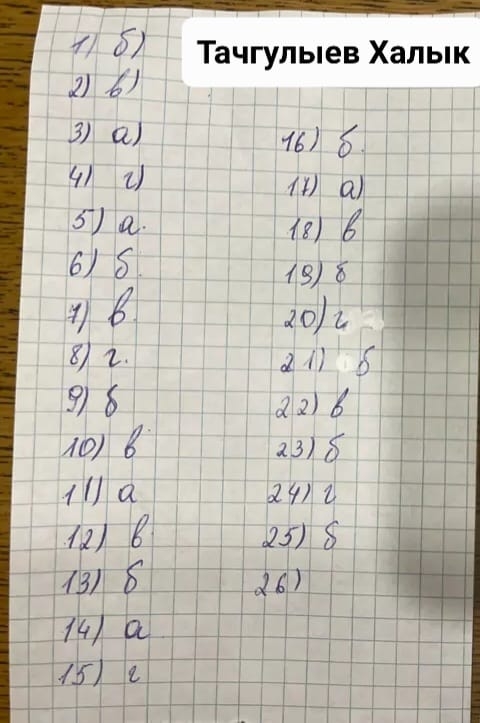 Тачгулыев Халык
1) б)
2) в)
3) а)
4) г)
5) а.
6) б.
7) в.
8) г.
9) б
10) в
11) а
12) в
13) б
14) а
15) г
16) б.
17) а)
18) в
19) б
20) г
21) б
22) в
23) б
24) г
25) б
26)